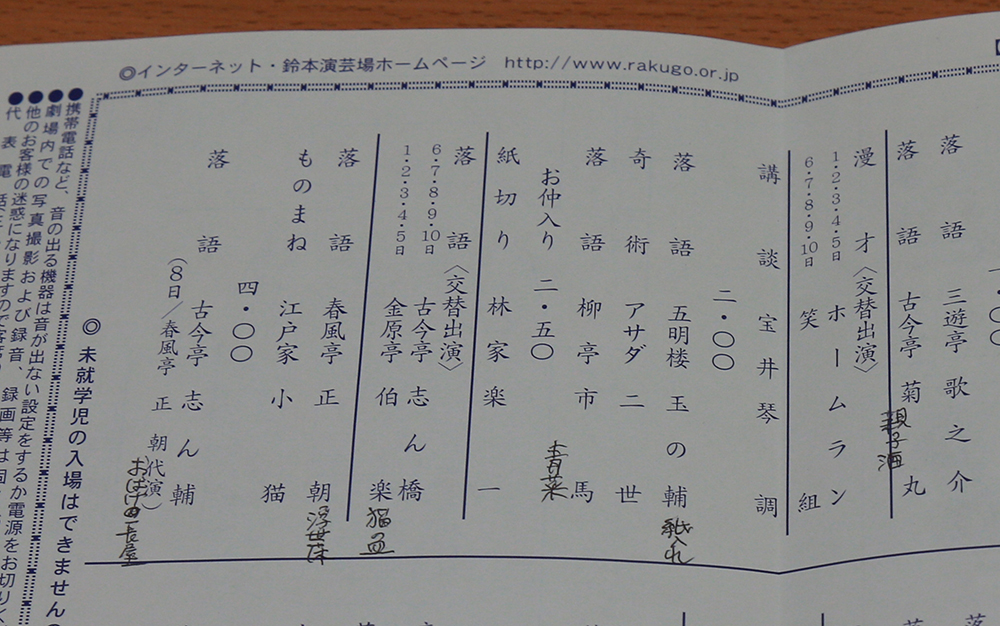 ◎インターネット・鈴本演芸場ホームページ http://www.rakugo.or.jp
・〇〇
落語 三遊亭歌之介
落語 古今亭菊丸
親子酒
漫才〈交替出演〉
1・2・3・4・5日 ホームラン
6・7・8・9・10日 笑組
講談 宝井琴調
二・〇〇
落語 五明楼玉の輔
紙入れ
奇術 アサダ二世
落語 柳亭市馬
青菜
お仲入り 二・五〇
紙切り 林家楽一
落語〈交替出演〉
6・7・8・9・10日 古今亭志ん橋
1・2・3・4・5日 金原亭伯楽
猫皿
落語 春風亭正朝
浮世床
ものまね 江戸家小猫
四・〇〇
落語 古今亭志ん輔
(8日/春風亭正朝代演)
おばけ長屋
◎未就学児の入場はできません。
●携帯電話など、音の出る機器は音が出ない設定をするか電源をお切りく
●劇場内での写真撮影および録音、録画等は固
●他のお客様の迷惑になりますので
●代表電話